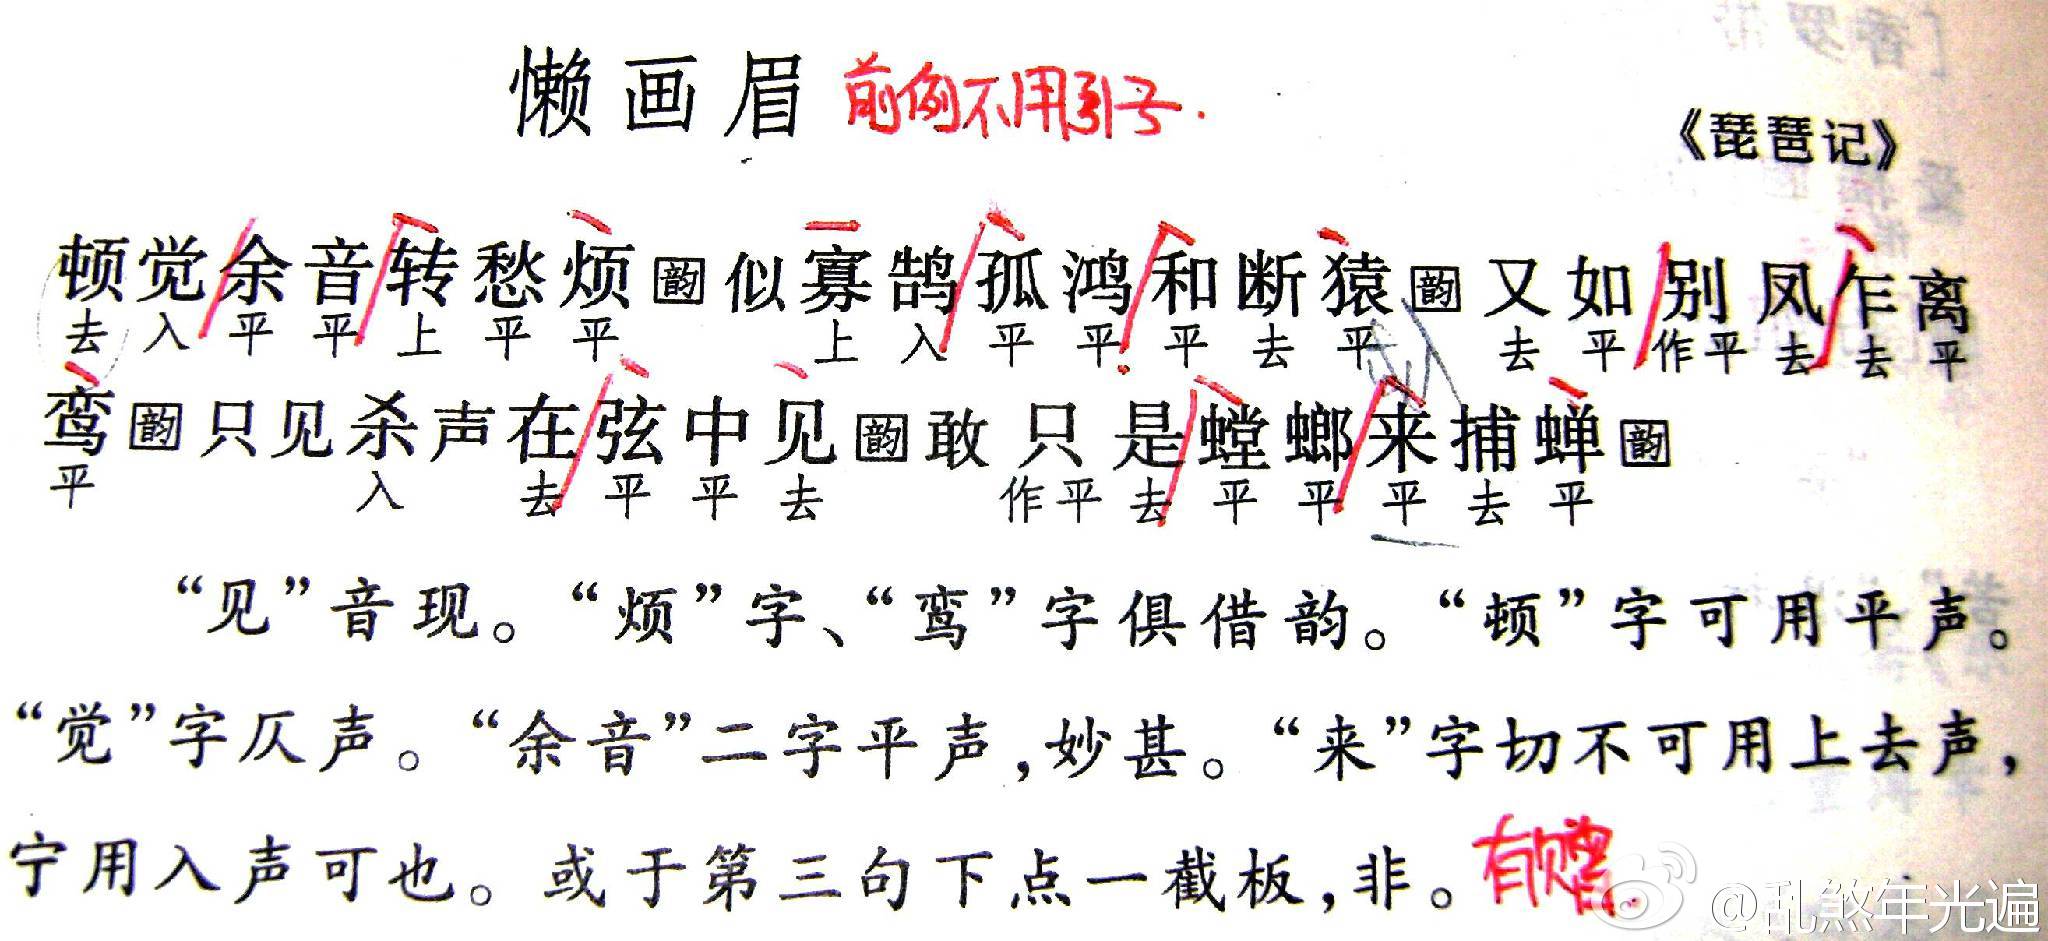 懒画眉 前例不用引子.
《琵琶记》
顿觉余音转愁烦韵似寡鹄孤鸿和断猿韵又如别凤乍离
去入平平上平平上入平平平去平去平作平去去平
鸾韵只见杀声在弦中见韵敢只是螳螂来捕蝉韵
平入去平平去作平去平平平去平
“见”音现。“烦”字、“鸾”字俱借韵。“顿”字可用平声。
“觉”字仄声。“余音”二字平声,妙甚。“来”字切不可用上去声,
宁用入声可也。或于第三句下点一截板,非。有
@乱煞年光遍